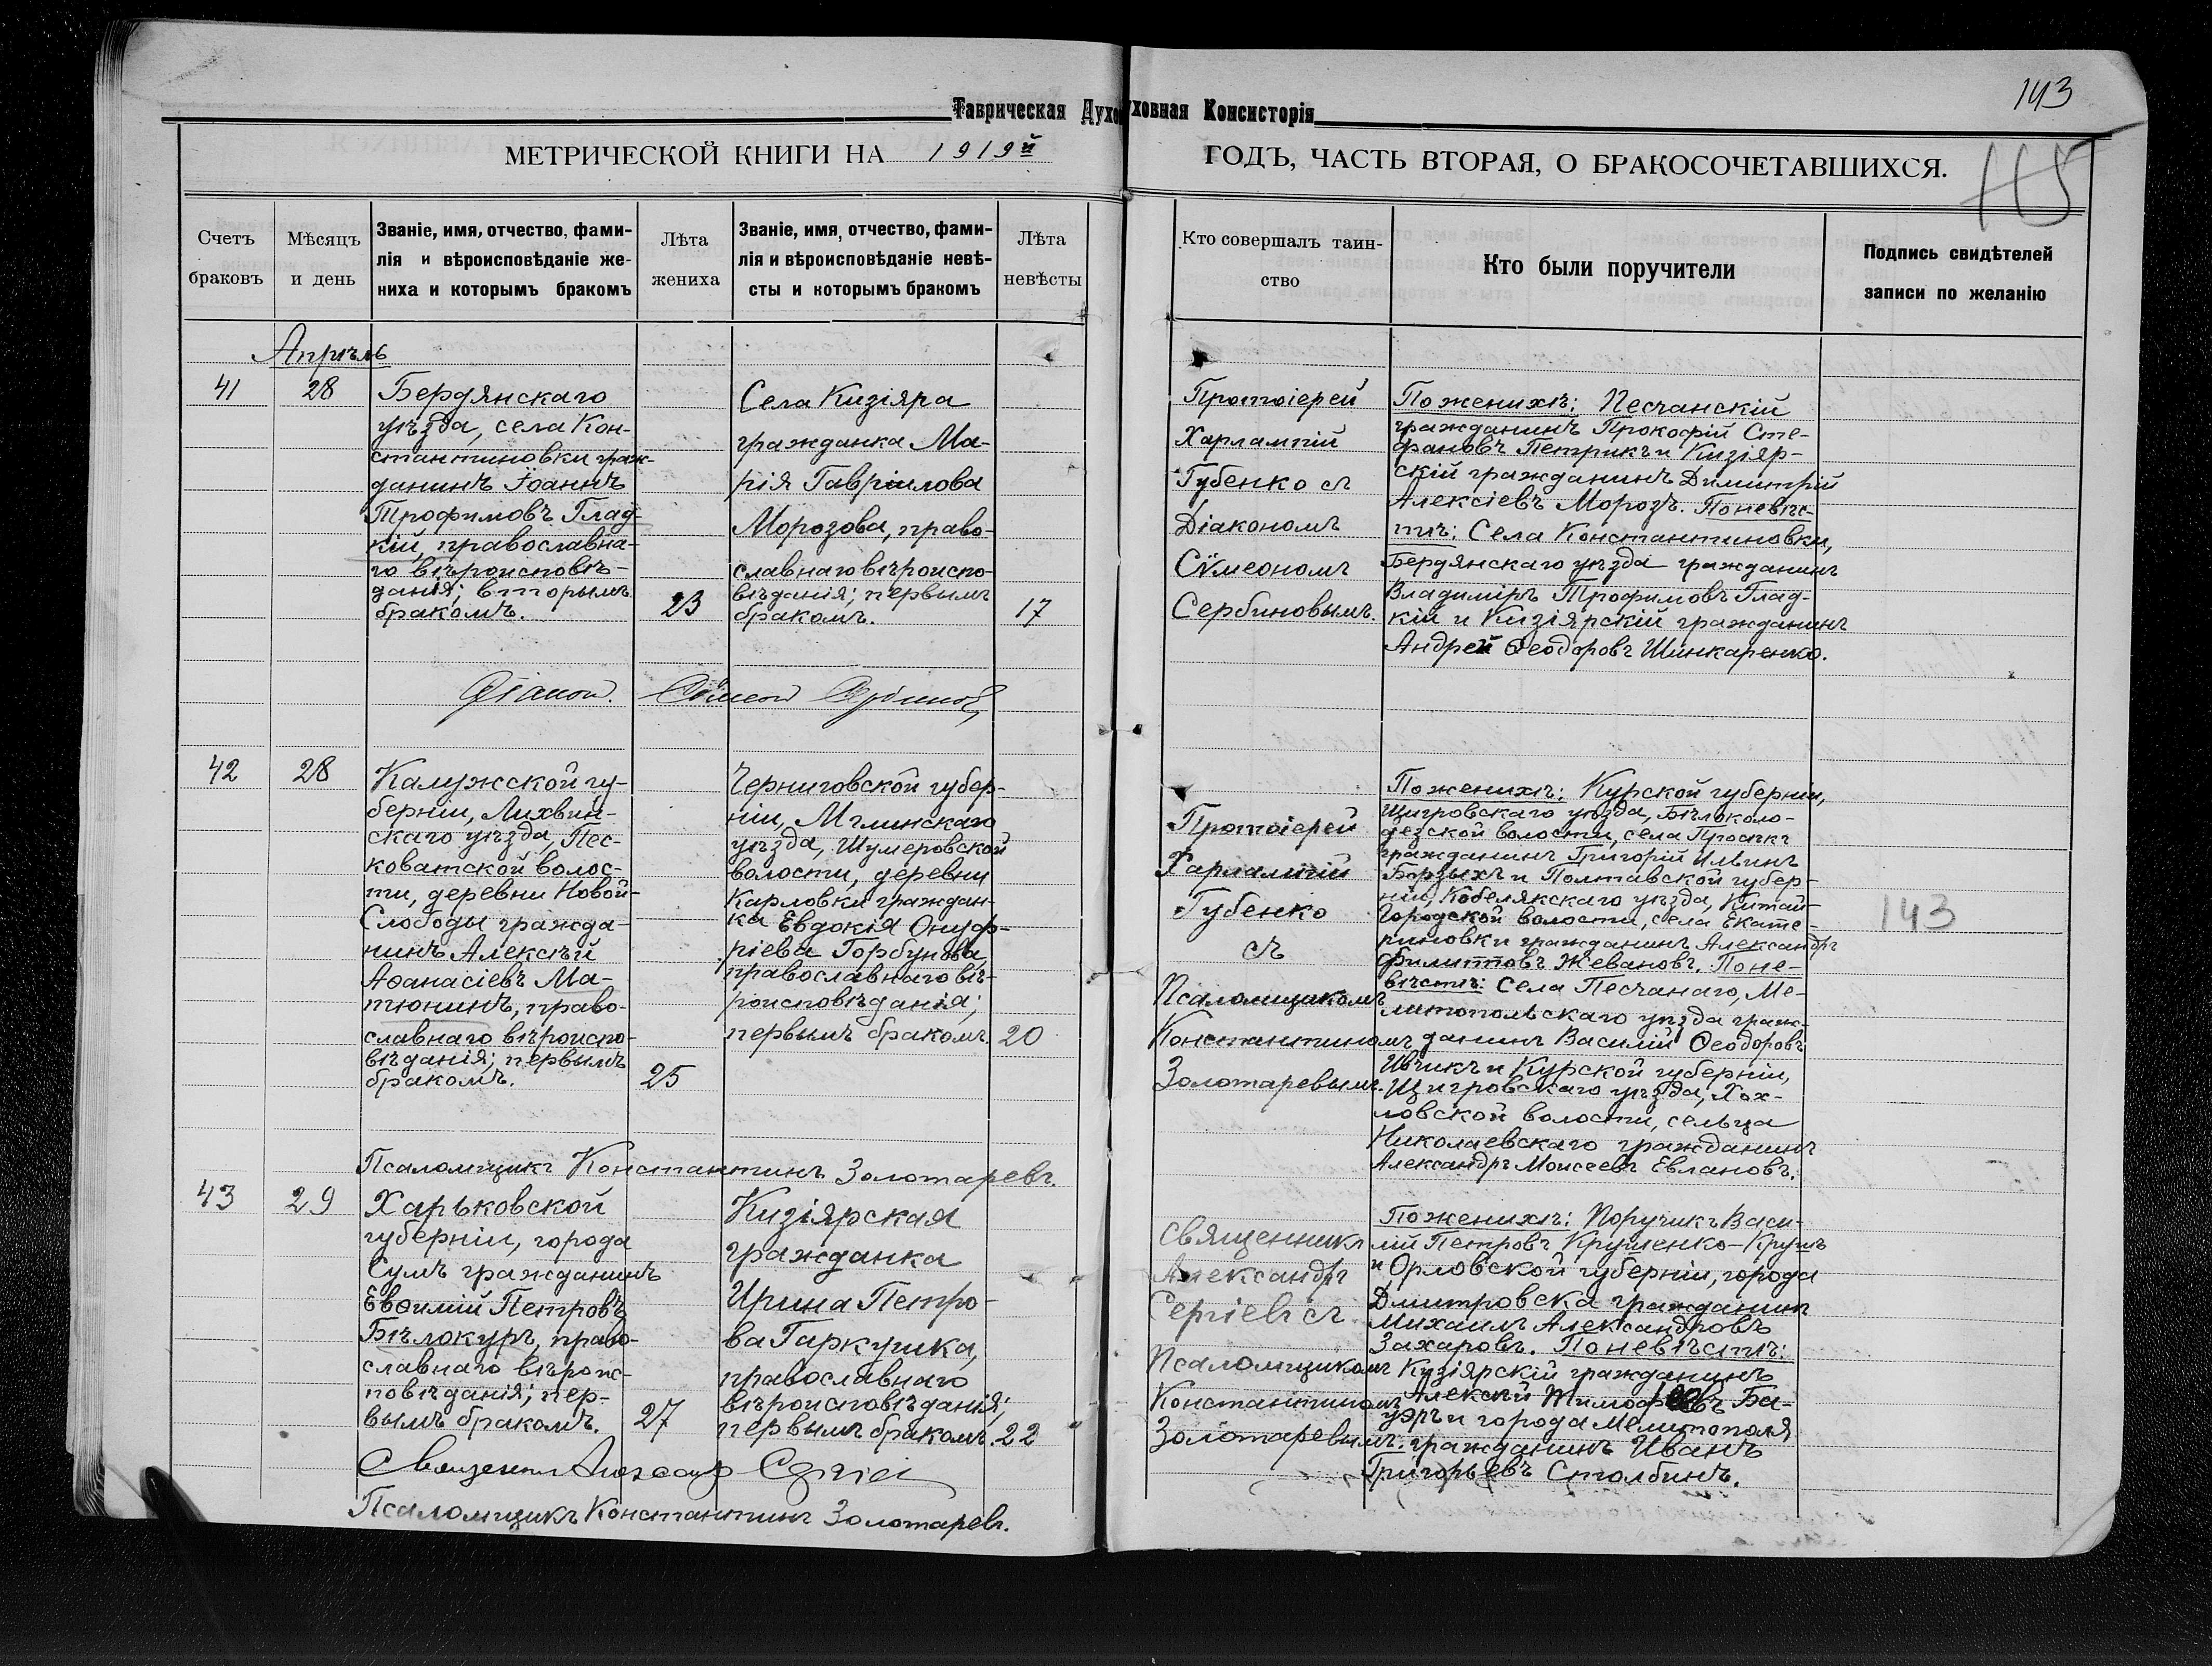 143
Таврическая Духовная Консисторія
МЕТРИЧЕСКОЙ КНИГИ НА 1919й ГОДЪ, ЧАСТЬ ВТОРАЯ, О БРАКОСОЧЕТАВШИХСЯ.
115
Счетъ
браковъ
Мѣсяцъ
и день
Званіе, имя, отчество, фами-
лія и вѣроисповѣданіе же-
ниха и которымъ бракомъ
Лѣта
жениха
Званіе, имя, отчество, фами-
лія и вѣроисповѣданіе невѣ-
сты и которымъ бракомъ
Лѣта
невѣсты
Кто совершалъ таин-
ство
Кто были поручители
Подпись свидѣтелей
записи по желанію
Апрѣль
41
28
Бердянскаго
уѣзда, села Кон-
стантиновки граж-
данинъ Іоаннъ
Трофимовъ Глад-
кій, православна-
го вѣроисповѣ-
данія; вторымъ
бракомъ.
23
Села Кизіяра
гражданка Ма-
рія Гавріилова
Морозова, право-
славнаго вѣроиспо-
вѣданія; первымъ
бракомъ.
17
Протоіерей
Харлампій
Губенко съ
Діакономъ
Сѵмеономъ
Сербиновымъ.
По женихѣ: Песчанскій
гражданинъ Прокофій Сте-
фановъ Петрикъ и Кизіяр-
скій гражданинъ Димитрій
Алексіевъ Морозъ. По невѣс-
тѣ: Села Константиновки,
Бердянскаго уѣзда гражданинъ
Владиміръ Трофимовъ Глад-
кій и Кизіярскій гражданинъ
Андрей Ѳеодоровъ Шинкаренко.
Діакон. Сѵмеон Сербинов
42
28
Калужской гу-
берніи, Лихвин-
скаго уѣзда, Пес-
коватской волос-
ти, деревни Новой
Слободы гражда-
нинъ Алексѣй
Аѳанасіевъ Ма-
тюнинъ, право-
славнаго вѣроиспо-
вѣданія; первымъ
бракомъ.
25
Черниговской губер-
ніи, Мглинскаго
уѣзда, Шумеровской
волости, деревни
Карловки граждан-
ка Евдокія Онуф-
ріева Горбунова,
православнаго вѣ-
роисповѣданія;
первымъ бракомъ.
20
Протоіерей
Харлампій
Губенко
съ
Псаломщикомъ
Константиномъ
Золотаревымъ.
По женихѣ: Курской губерніи,
Щигровскаго уѣзда, Бѣлоколо-
дезской волости, села
гражданинъ Григорій Ильинъ
Борзыхъ и Полтавской губер-
ніи, Кобелякскаго уѣзда, Китай-
городской волости, села Екате-
риновки гражданинъ Александръ
Филипповъ Жевановъ. По не-
вѣстѣ: Села Песчанаго, Ме-
литопольскаго уѣзда граж-
данинъ Василій Ѳеодоровъ
Ивчикъ и Курской губерніи,
Щигровскаго уѣзда, Хох-
ловской волости, сельца
Николаевскаго гражданинъ
Александръ Моисеевъ Евлановъ.
143
Псаломщикъ Константинъ Золотаревъ.
43
29
Харьковской
губерніи, города
Сумъ гражданинъ
Евѳимій Петровъ
Бѣлокуръ, право-
славнаго вѣроис-
повѣданія; пер-
вымъ бракомъ.
27
Кизіярская
гражданка
Ирина Петро-
ва Гаркушка,
православнаго
вѣроисповѣданія;
первымъ бракомъ.
22
Священникъ
Александръ
Сергіевъ съ
Псаломщикомъ
Константиномъ
Золотаревымъ.
По женихѣ: Поручикъ Васи-
лій Петровъ
и Орловской губерніи, города
Дмитровска гражданинъ
Михаилъ Александровъ
Захаровъ. По невѣстѣ:
Кузіярскій гражданинъ
Алексѣй
и города Мелитополя
гражданинъ Иванъ
Григорьевъ Столбинъ.
Священник Александр
Псаломщикъ Константинъ Золотаревъ.